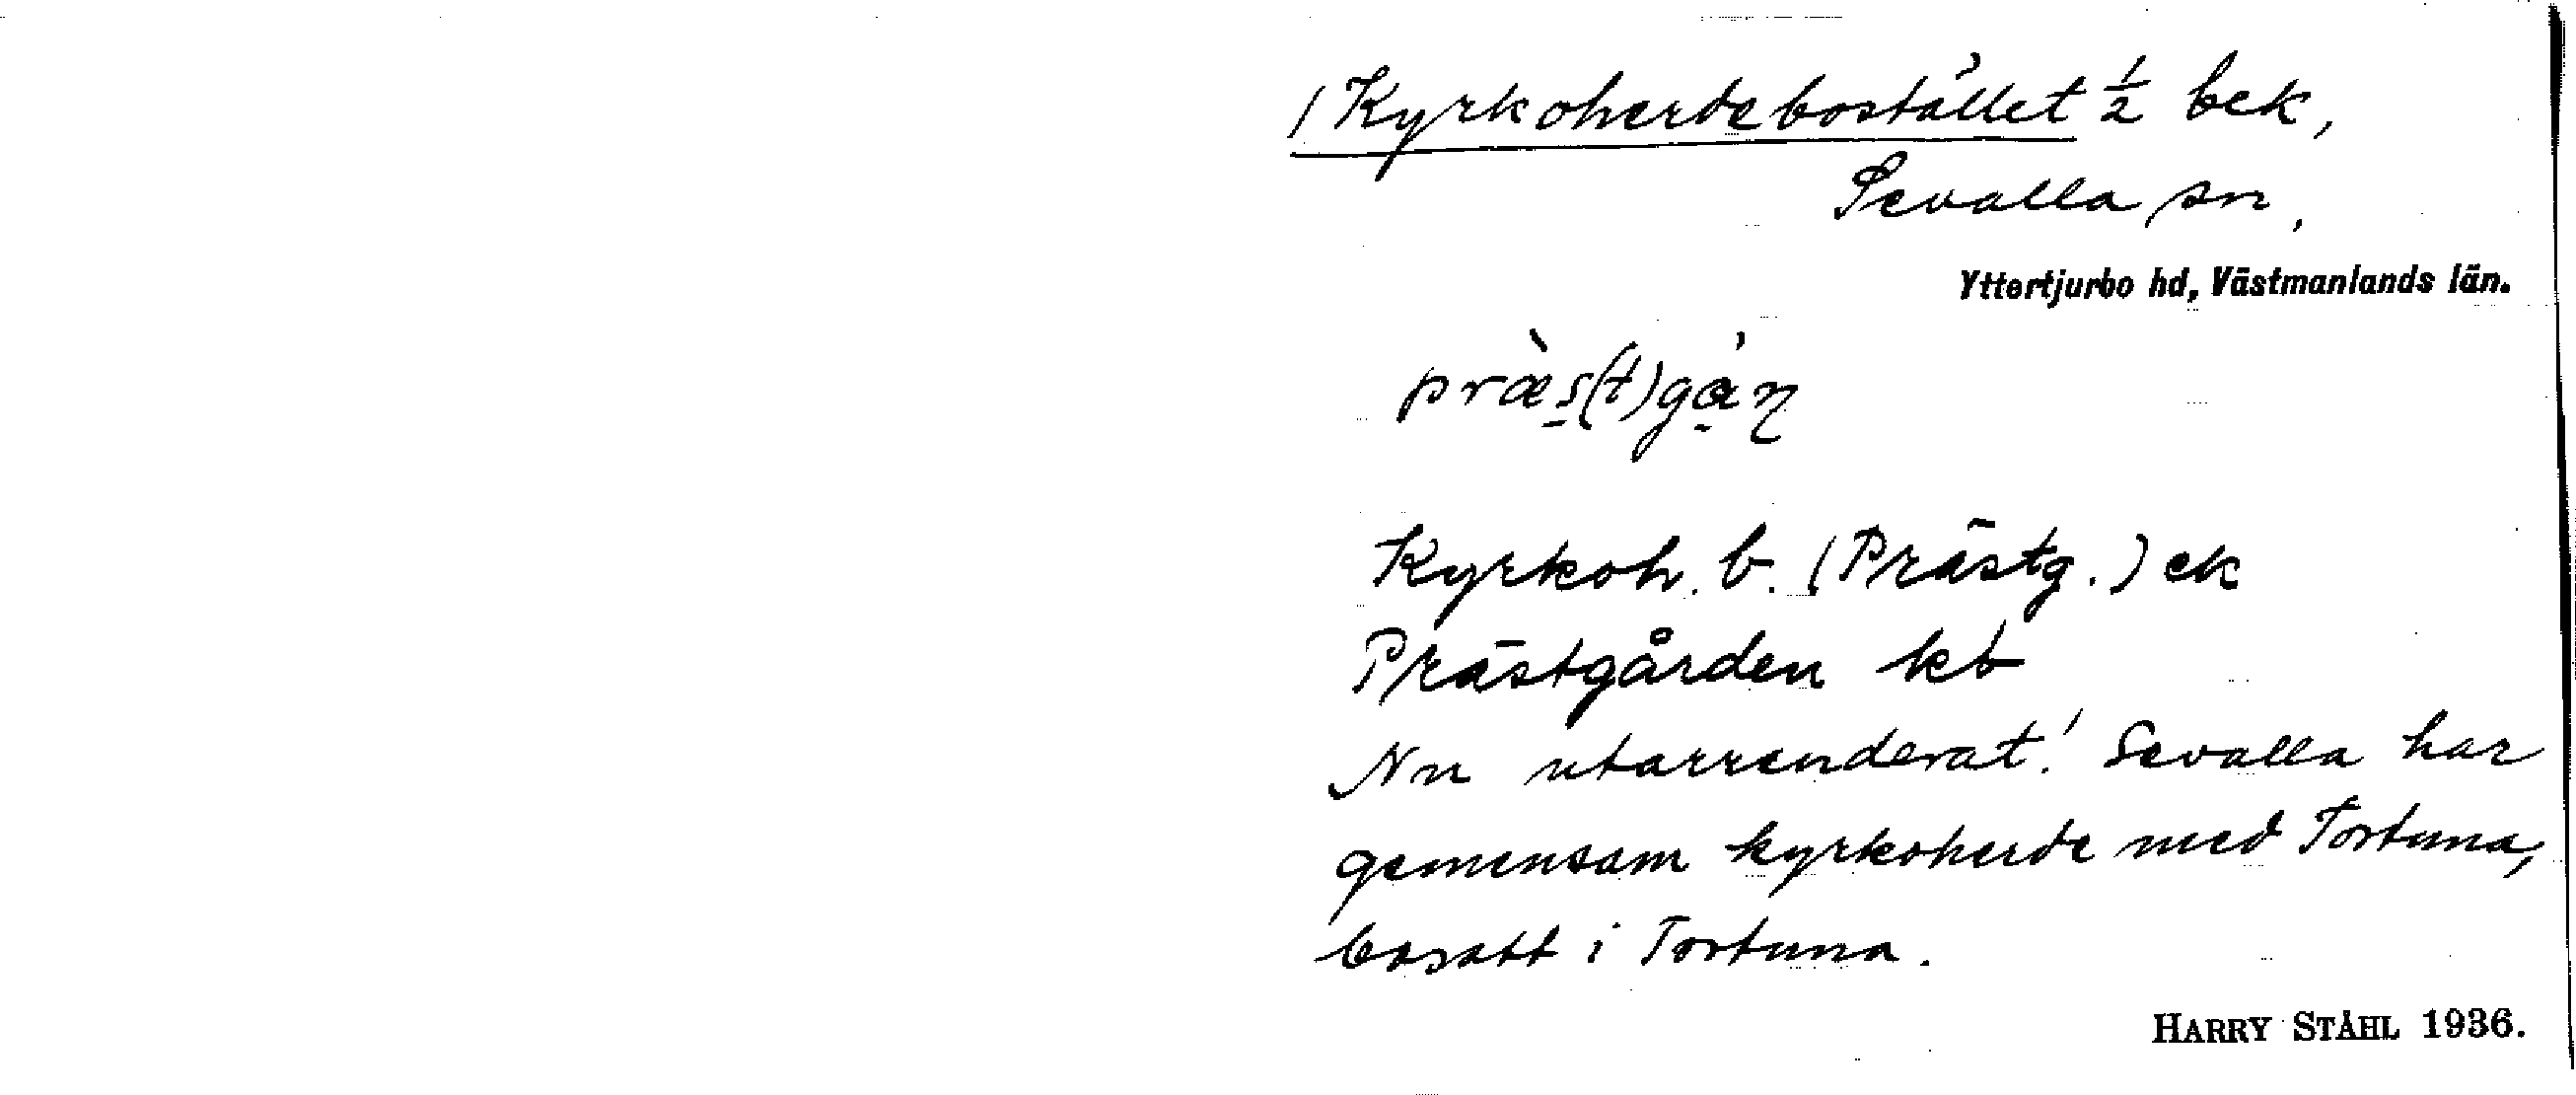 /Kyrkoherdebostället ½ bek,
Sevalla sn,
Yttertjurbo hd, Västmanlands län.
præ̀s̠(t)gɑ̠̀ɳ
Kyrkoh. b. (Prästg.) ek
Prästgården kb
Nu utarrenderat! Sevalla har
gemensam kyrkoherde med Tortuna,
bosatt i Tortuna.
HARRY STÅHL 1936.